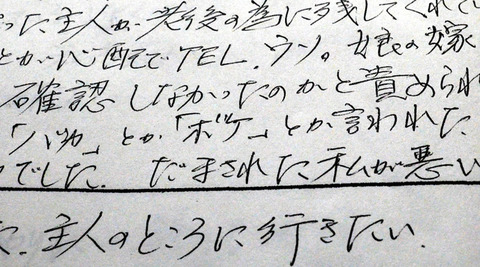 った主人が老後の為に残してくれてい
とかが心配でTEL.ウソ。娘の嫁
確認しなかったのかと責められ
「バカ」とか「ボケ」とか言われた
でした。だまされた私が悪い
た.主人のところに行きたい.